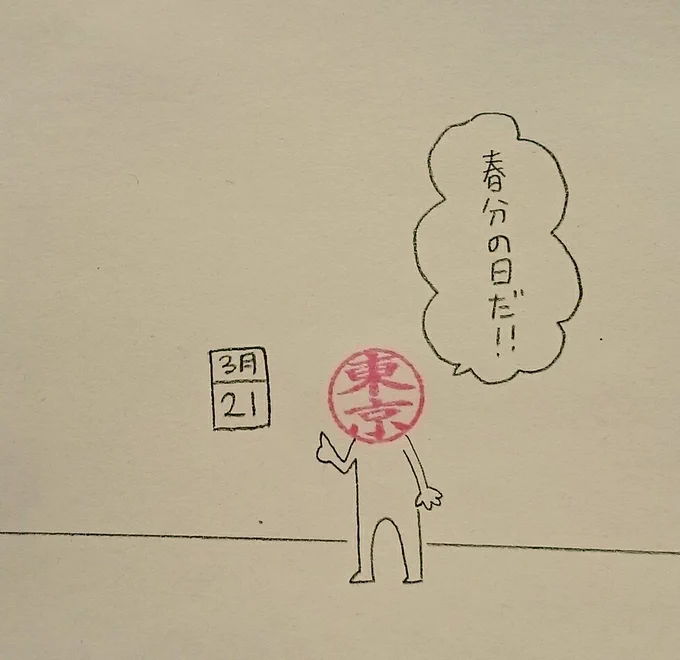 春分の日だ!!
3月
21
東京